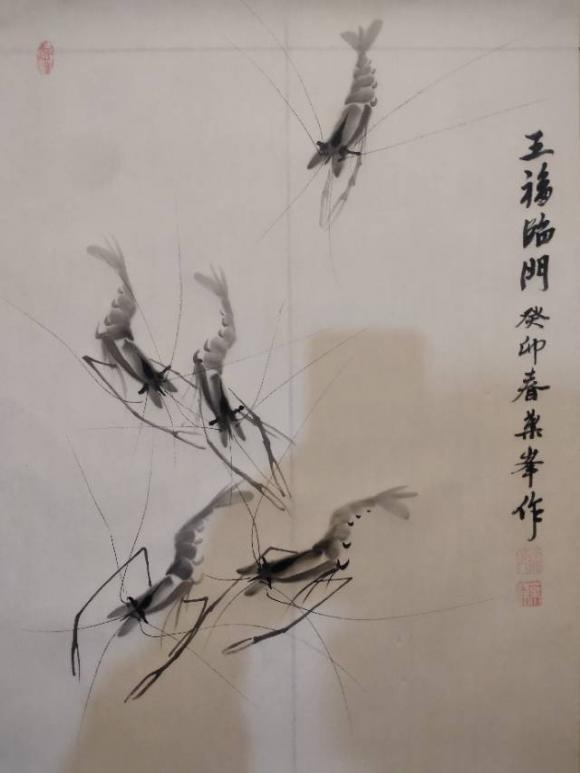 五福臨門 癸卯春 峯作